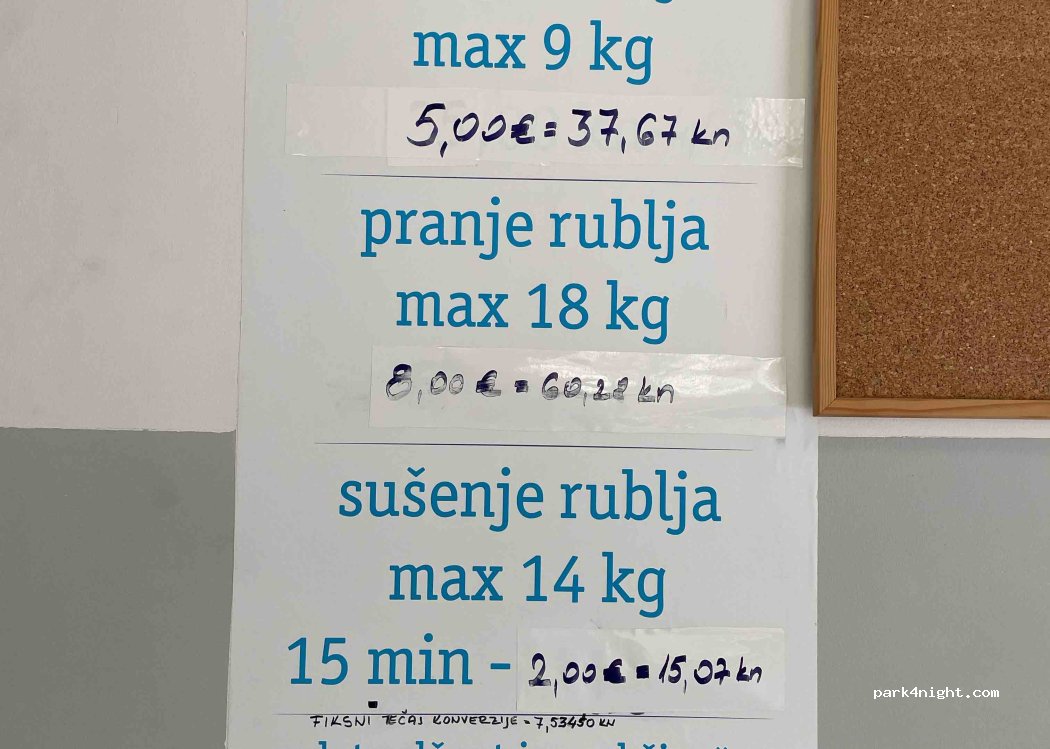 max 9 kg
5,00€ = 37,67 kn
pranje rublja
max 18 kg
8,00 € = 60,28 kn
sušenje rublja
max 14 kg
15 min - 2,00€ = 15,07 kn
FIKSNI TEČAJ KONVERZIJE = 7,53450 KN
park4night.com